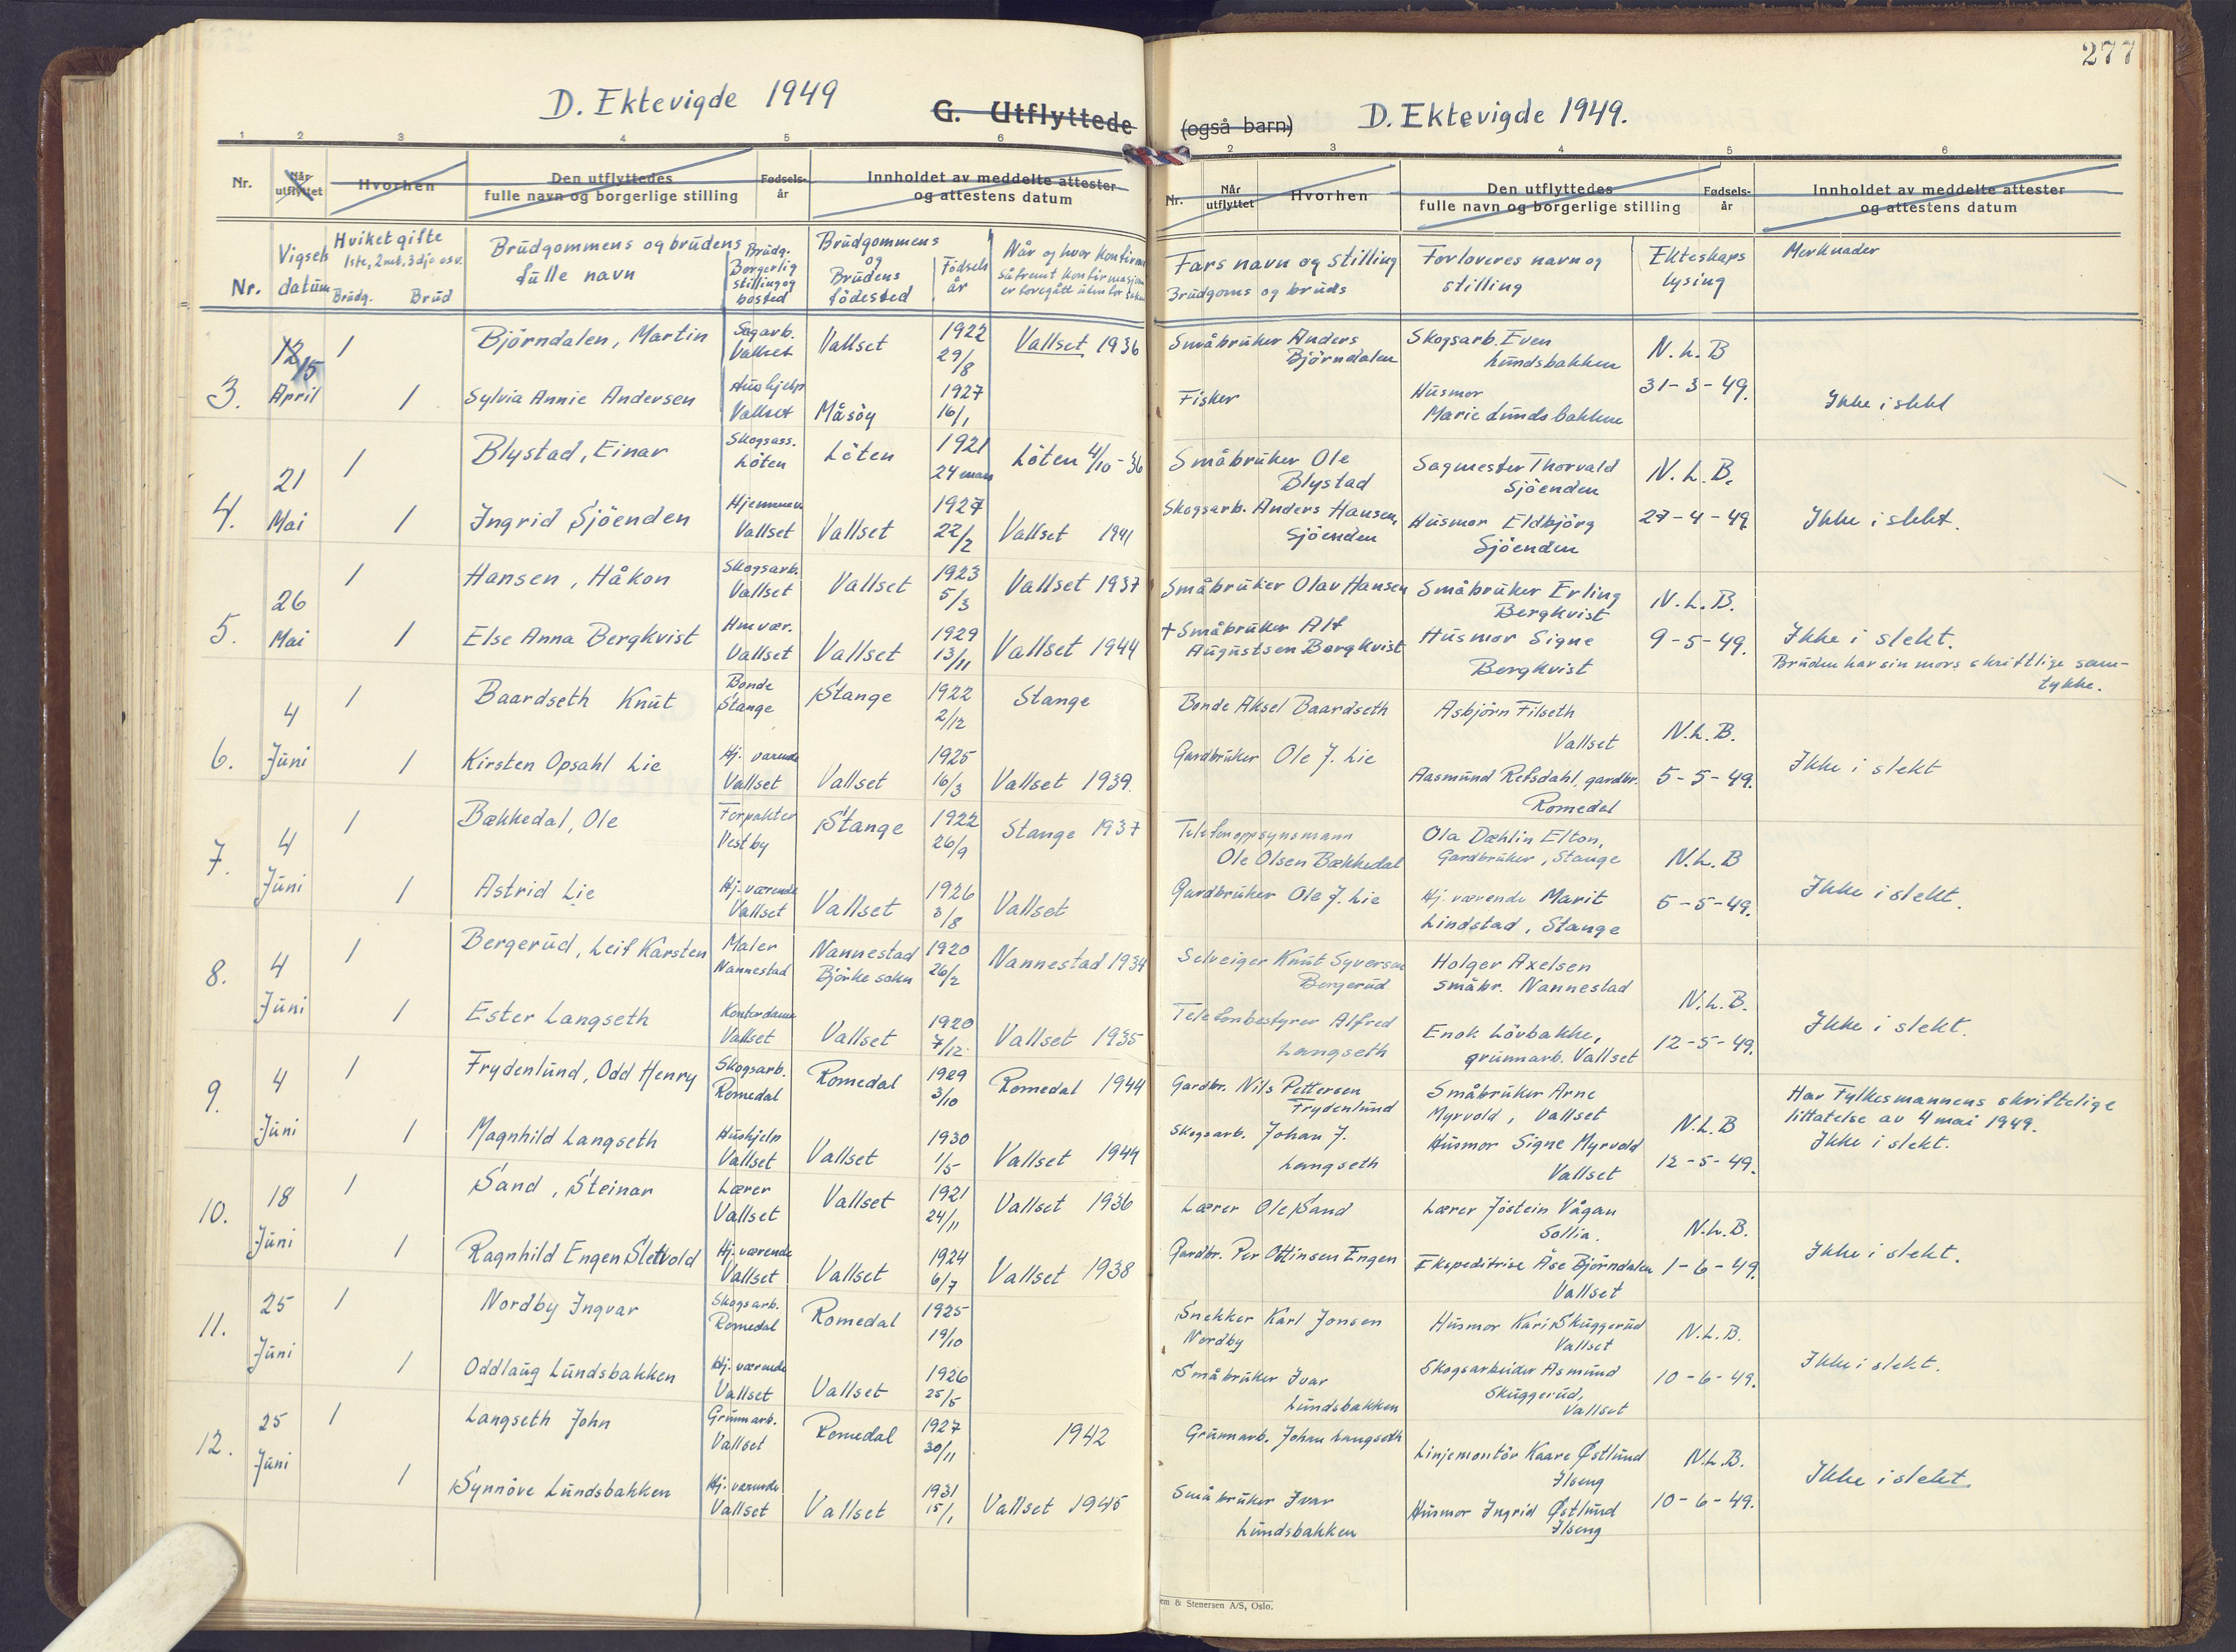 277
D. Ektevigde 1949
G. Utflyttede
(også barn)
D. Ektevigde 1949.
1 2 3 4 5 6
Nr.
Når utflyttet
Hvorhen
Den utflyttedes fulle navn og borgerlige stilling
Fødselsår
Innholdet av meddelte attester og attestens datum
2 3 4 5 6
Nr.
Når utflyttet
Hvorhen
Den utflyttedes fulle navn og borgerlige stilling
Fødsels-år
Innholdet av meddelte attester og attestens datum
Nr.
Vigsels datum
Hviket gifte 1ste, 2net, 3dje osv.
Brudg. Brud
Brudgommens og brudens fulle navn
Brudg. Borgerlig stilling og bosted
Brudgommens og Brudens födested
Födsels år
Når og hvor konfirm
såfremt konfirmasjon
er foregått utenfor
Fars navn og stilling
Brudgoms og bruds
Forloveres navn og stilling
Ekteskaps lysing
Merknader
3. 12/15 April
1 Björndalen, Martin Sagarb. Vallset Vallset 1922 29/8 Vallset 1936 Småbruker Anders Björndalen Skogsarb. Even Lundsbakken N.L.B
1 Sylvia Annie Andersen Hushjelp Vallset Måsöy 1927 16/1 Fisker Husmor Marie Lundsbakken 31-3-49. Ikke i slekt
4. 21 Mai
1 Blystad, Einar Skogsass. Löten Löten 1921 24 mars Löten 4/10-36 Småbruker Ole Blystad Sagmester Thorvald Sjöenden N.L.B.
1 Ingrid Sjöenden Hjemmev. Vallset Vallset 1927 22/2 Vallset 1941 Skogsarb. Anders Hansen, Sjöenden Husmor Eldbjörg Sjöenden 27-4-49 Ikke i slekt.
5. 26 Mai
1 Hansen, Håkon Skogsarb. Vallset Vallset 1923 5/3 Vallset 1937 Småbruker Olav Hansen Småbruker Erling Bergkvist N.L.B.
1 Else Anna Bergkvist Hmvær. Vallset Vallset 1929 13/11 Vallset 1944 + Småbruker Alf Augustsen Bergkvist Husmor Signe Bergkvist 9-5-49. Ikke i slekt.
Bruden har sin mors skriftlige sam-
tykke.
6. 4 Juni
1 Baardseth Knut Bonde Stange Stange 1922 2/12 Stange Bonde Aksel Baardseth Asbjörn Filseth Vallset N.L.B.
1 Kirsten Opsahl Lie Hj. værende Vallset Vallset 1925 16/3 Vallset 1939. Gardbruker Ole J. Lie Aasmund Refsdahl, gardbr. Romedal 5-5-49. Ikke i slekt
7. 4 Juni
1 Bækkedal, Ole Forpakter Vestby Stange 1922 26/9 Stange 1937 Telefonoppsynsmann Ole Olsen Bækkedal Ola Dæhlin Elton, Gardbruker, Stange N.L.B
1 Astrid Lie Hj. værende Vallset Vallset 1926 3/8 Vallset Gardbruker Ole J. Lie Hj. værende Marit Lindstad, Stange 5-5-49. Ikke i slekt.
8. 4 Juni
1 Bergerud, Leif Karsten Maler Nannestad Nannestad Bjørke sokn 1920 26/2 Nannestad 1934 Selveiger Knut Syversen Bergerud Holger Axelsen småbr. Nannestad N.L.B.
1 Ester Langseth Kontordame Vallset Vallset 1920 7/12 Vallset 1935 Telefonbestyrer Alfred Langseth Enok Lövbakke, grunnarb. Vallset 12-5-49. Ikke i slekt.
9. 4 Juni
1 Frydenlund, Odd Henry Skogsarb. Romedal Romedal 1929 3/10 Romedal 1944 Gardbr. Nils Pettersen Frydenlund Småbruker Arne Myrvold, Vallset N.L.B Har Fylkesmannens skriftelige tillatelse av 4 mai 1949.
1 Magnhild Langseth Hushjelp Vallset Vallset 1930 1/5 Vallset 1944 Skogsarb. Johan J. Langseth Husmor Signe Myrvold Vallset 12-5-49. Ikke i slekt.
10. 18 Juni
1 Sand, Steinar Lærer Vallset Vallset 1921 24/11 Vallset 1936 Lærer Ole Sand Lærer Jöstein Vågan Sollia. N.L.B.
1 Ragnhild Engen Slettvold Hj. værende Vallset Vallset 1924 6/7 Vallset 1938 Gardbr. Per Ottinsen Engen Ekspeditrise Åse Björndalen Vallset 1-6-49. Ikke i slekt.
11. 25 Juni
1 Nordby Ingvar Skogsarb. Romedal Romedal 1925 19/10 Snekker Karl Jonsen Nordby Husmor Kari Skuggerud Vallset N.L.B.
1 Oddlaug Lundsbakken Hj. værende Vallset Vallset 1926 25/5 Småbruker Ivar Lundsbakken Skogsarbeider Asmund Skuggerud, Vallset 10-6-49. Ikke i slekt.
12. 25 Juni
1 Langseth John Grunnarb. Vallset Romedal 1927 30/11 1942 Grunnarb. Johan Langseth Linjemontör Kaare Østlund Ilseng N.L.B.
1 Synnöve Lundsbakken Hj. værende Vallset Vallset 1931 15/1 Vallset 1945 Småbruker Ivar Lundsbakken Husmor Ingrid Østlund Ilseng 10-6-49. Ikke i slekt
em & Stenersen A/S, Oslo.